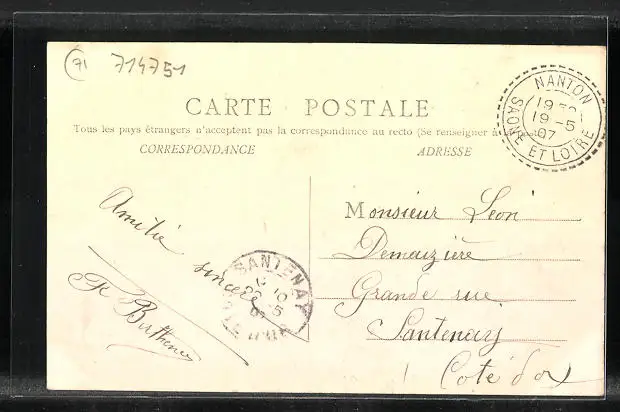 71 714751
CARTE POSTALE
Tous les pays étrangers n'acceptent pas la correspondance au recto (Se renseigner à la poste)
CORRESPONDANCE
ADRESSE
NANTON
19-5
07
SAONE ET LOIRE
Amitié
sincère
SANTENAY
Monsieur Léon
Demaizière
Grande rue
Santenay
Côte d'or